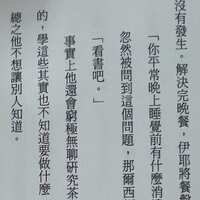 沒有發生。解決完晚餐，伊耶將餐
「你平常晚上睡覺前有什麼消
忽然被問到這個問題，那爾西
「看書吧。」
事實上他還會窮極無聊研究茶
的，學這些其實也不知道要做什麼
總之他不想讓別人知道。